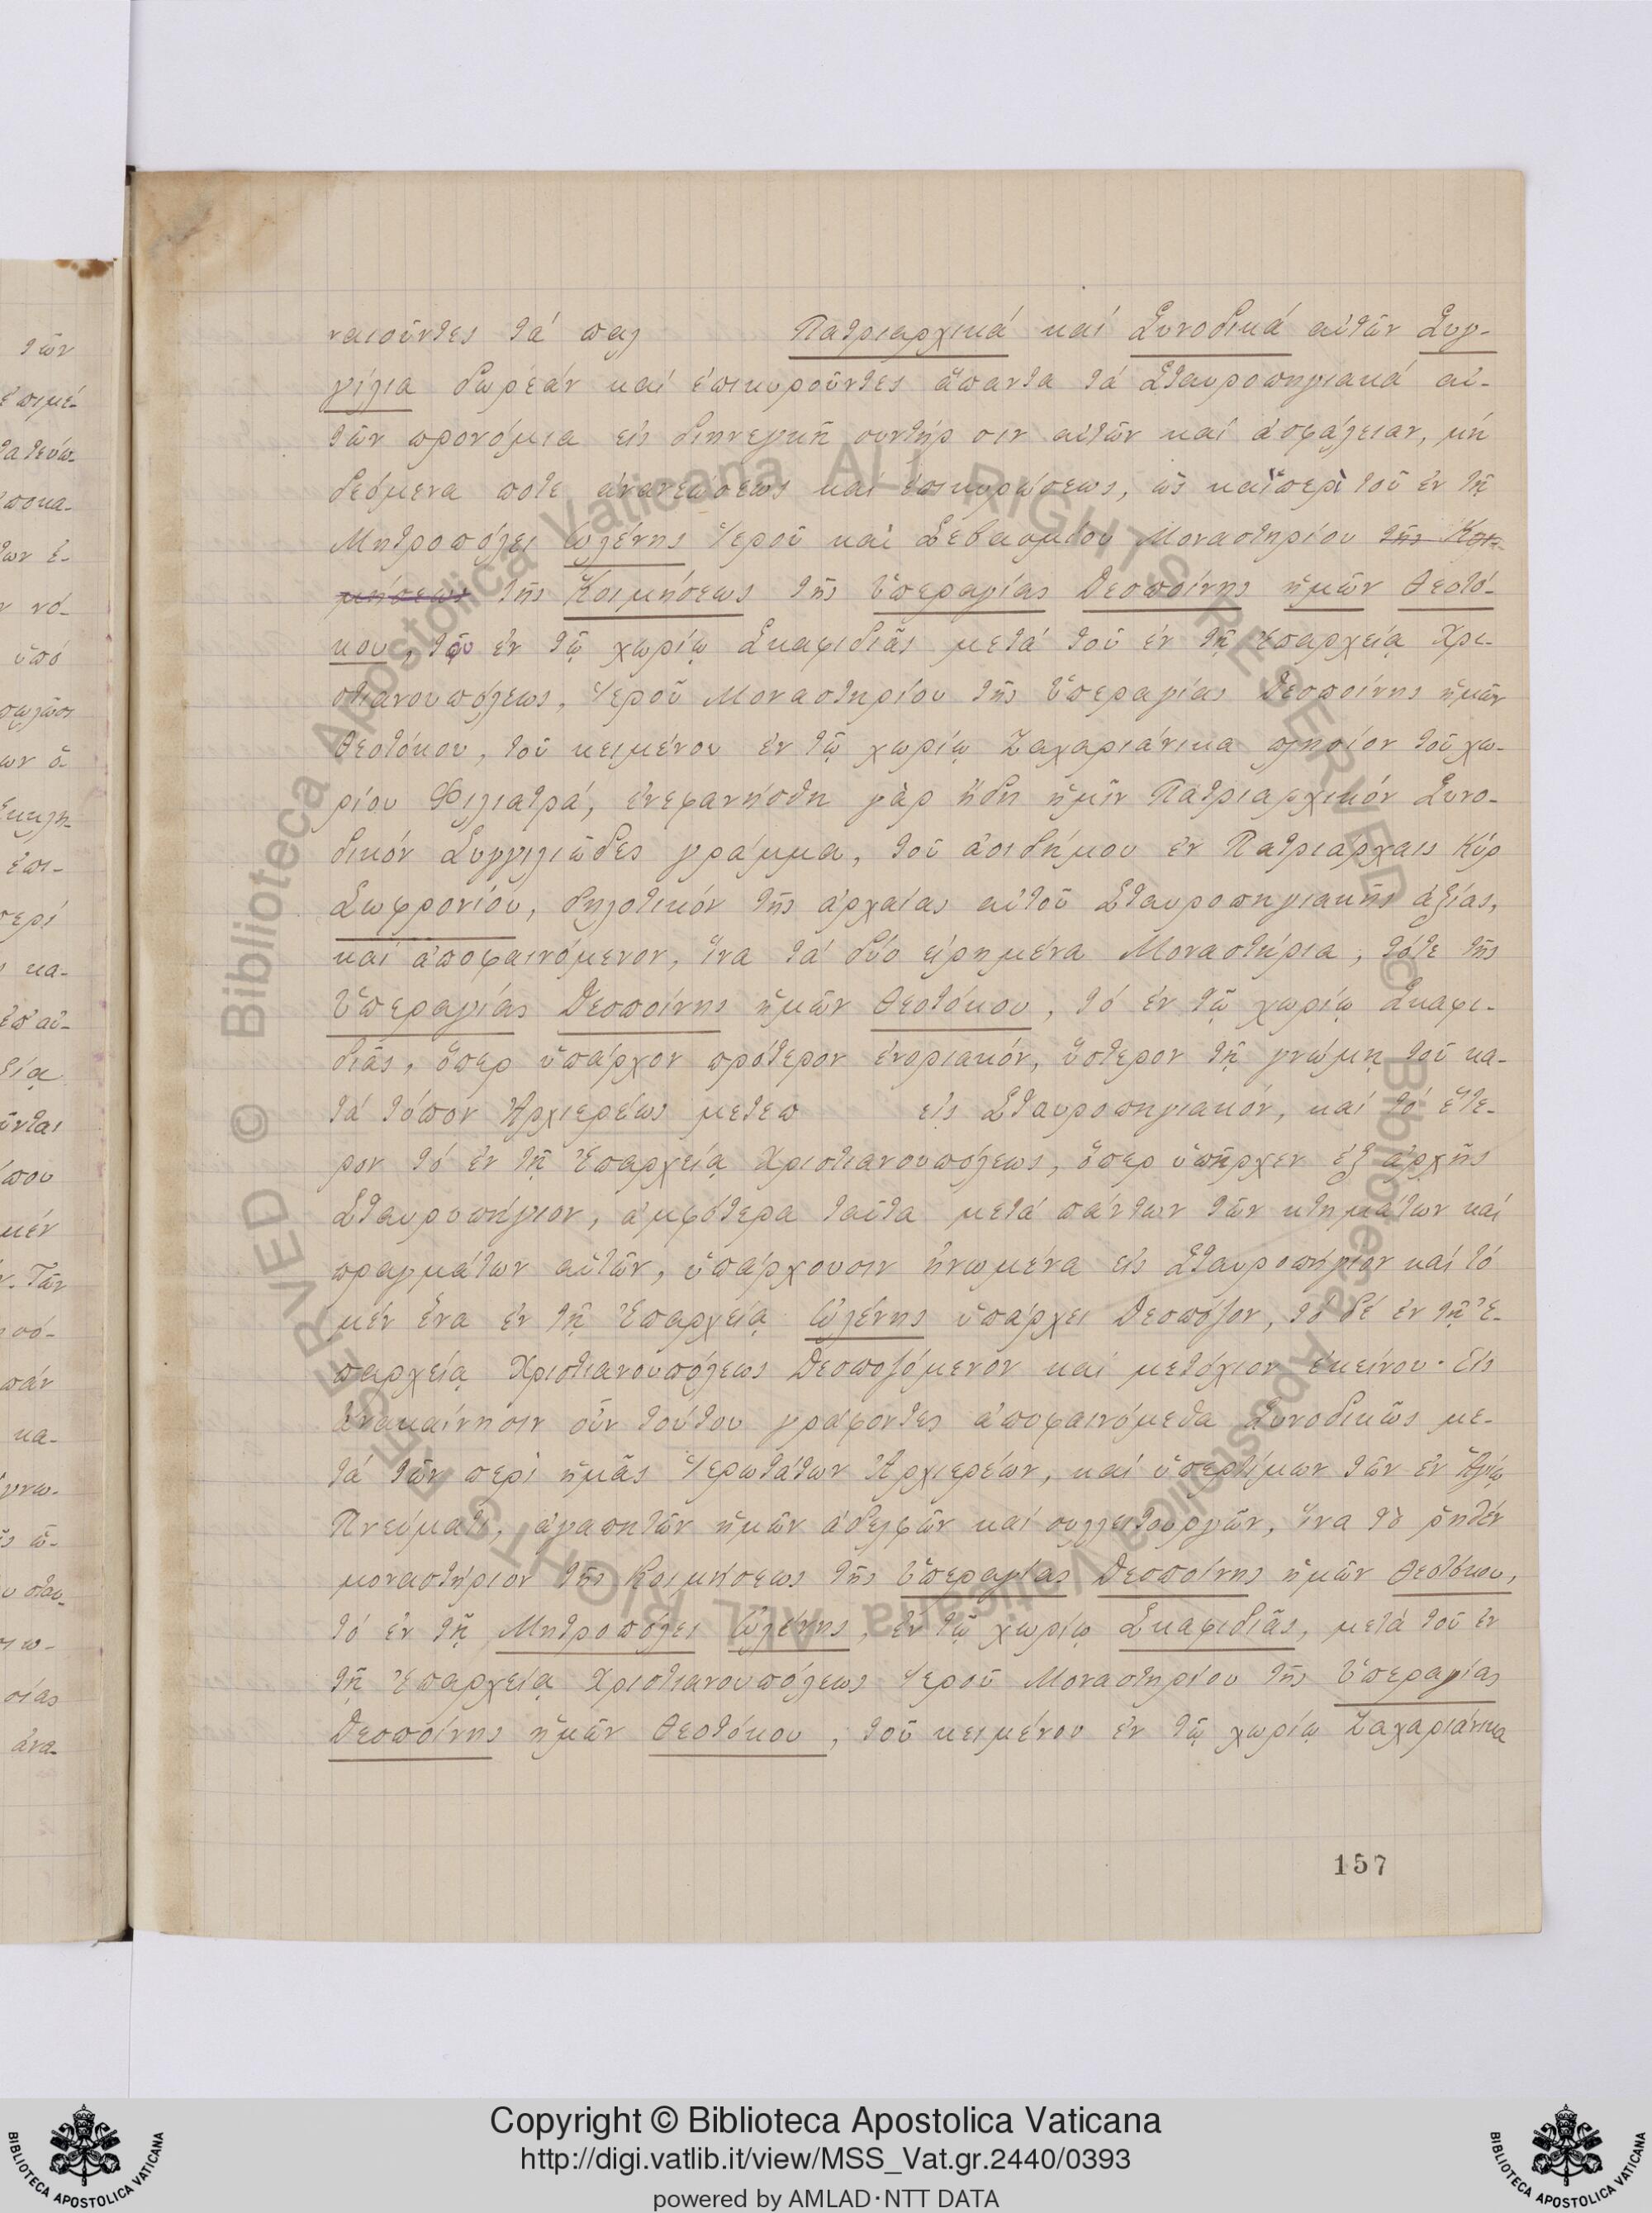 ναιοῦντες τά παλ Πατριαρχικά καί Συνοδικά αὐτῶν Συγ-
γίλια δωρεάν καί ἐπικυροῦντες ἅπαντα τά Σταυροπηγιακά αὐ-
τῶν προνόμια εἰς διηνεγκῆ συντήρ σιν αὐτῶν καί ἀσφάλειαν, μή
δεόμενα ποτε ἀνανεώσεως καί ἐπικυρώσεως, ὡς καί περὶ τοῦ ἐν τῇ
Μητροπόλει Ὠλένης Ἱεροῦ καὶ Σεβασμίου Μοναστηρίου τῆς Κοι-
μήσεως τῆς Κοιμήσεως τῆς Ὑπεραγίας Δεσποίνης ἡμῶν Θεοτό-
κου, τοῦ ἐν τῷ χωρίῳ Σκαφιδιᾶς μετά τοῦ ἐν τῇ Ἐπαρχείᾳ Χρι-
στιανουπόλεως, Ἱεροῦ Μοναστηρίου τῆς Ὑπεραγίας Δεσποίνης ἡμῶν
Θεοτόκου, τοῦ κειμένου ἐν τῷ χωρίῳ Ζαχαριάνικα πλησίον τοῦ χω-
ρίου Φιλιατρά, ἐνεφανήσθη γὰρ ἤδη ἡμῖν Πατριαρχικόν Συνο-
δικόν Συγγιλιῶδες γράμμα, τοῦ ἀοιδήμου ἐν Πατριάρχαις Κύρ
Σωφρονίου, δηλοτικόν τῆς ἀρχαίας αὐτοῦ Σταυροπηγιακῆς ἀξίας,
καί ἀποφαινόμενον, ἵνα τά δύο εἰρημένα Μοναστήρια, τότε τῆς
Ὑπεραγίας Δεσποίνης ἡμῶν Θεοτόκου, τό ἐν τῷ χωρίῳ Σκαφι-
διᾶς, ὅπερ ὑπάρχον πρότερον ἐνοριακόν, ὕστερον τῇ γνώμῃ τοῦ κα-
τά τόπον Ἀρχιερέως μετεπ εἰς Σταυροπηγιακόν, καί τό ἕτε-
ρον τό ἐν τῇ Ἐπαρχείᾳ Χριστιανουπόλεως, ὅπερ ὑπῆρχεν ἐξ ἀρχῆς
Σταυροπήγιον, ἀμφότερα ταῦτα μετά πάντων τῶν κτημάτων καί
πραγμάτων αὐτῶν, ὑπάρχουσιν ἡνωμένα εἰς Σταυροπήγιον καί τό
μέν ἕνα ἐν τῇ Ἐπαρχείᾳ Ὠλένης ὑπάρχει Δεσπόζον, τό δέ ἐν τῇ Ἐ-
παρχείᾳ Χριστιανουπόλεως Δεσποζόμενον καί μετόχιον ἐκείνου· Εἰς
ἀνακαίνησιν οὖν τούτου γράφοντες ἀποφαινόμεθα Συνοδικῶς με-
τά τῶν περὶ ἡμᾶς Ἱερωτάτων Ἀρχιερέων, καί ὑπερτίμων τῶν ἐν Ἁγίῳ
Πνεύματι, ἀγαπητῶν ἡμῶν ἀδελφῶν καί συλλειτουργῶν, ἵνα τὸ ῥηθέν
μοναστήριον τῆς Κοιμήσεως τῆς Ὑπεραγίας Δεσποίνης ἡμῶν Θεοτόκου,
τό ἐν τῇ Μητροπόλει Ὠλένης, ἐν τῷ χωρίῳ Σκαφιδιᾶς, μετά τοῦ ἐν
τῇ Ἐπαρχείᾳ Χριστιανουπόλεως Ἱεροῦ Μοναστηρίου τῆς Ὑπεραγίας
Δεσποίνης ἡμῶν Θεοτόκου, τοῦ κειμένου ἐν τῷ χωρίῳ Ζαχαριάνικα
157
Copyright © Biblioteca Apostolica Vaticana
http://digi.vatlib.it/view/MSS_Vat.gr.2440/0393
powered by AMLAD·NTT DATA